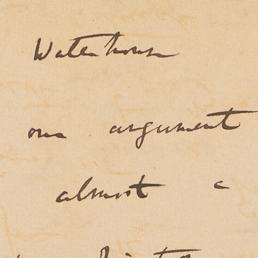 Waterhouse
one argument
almost a